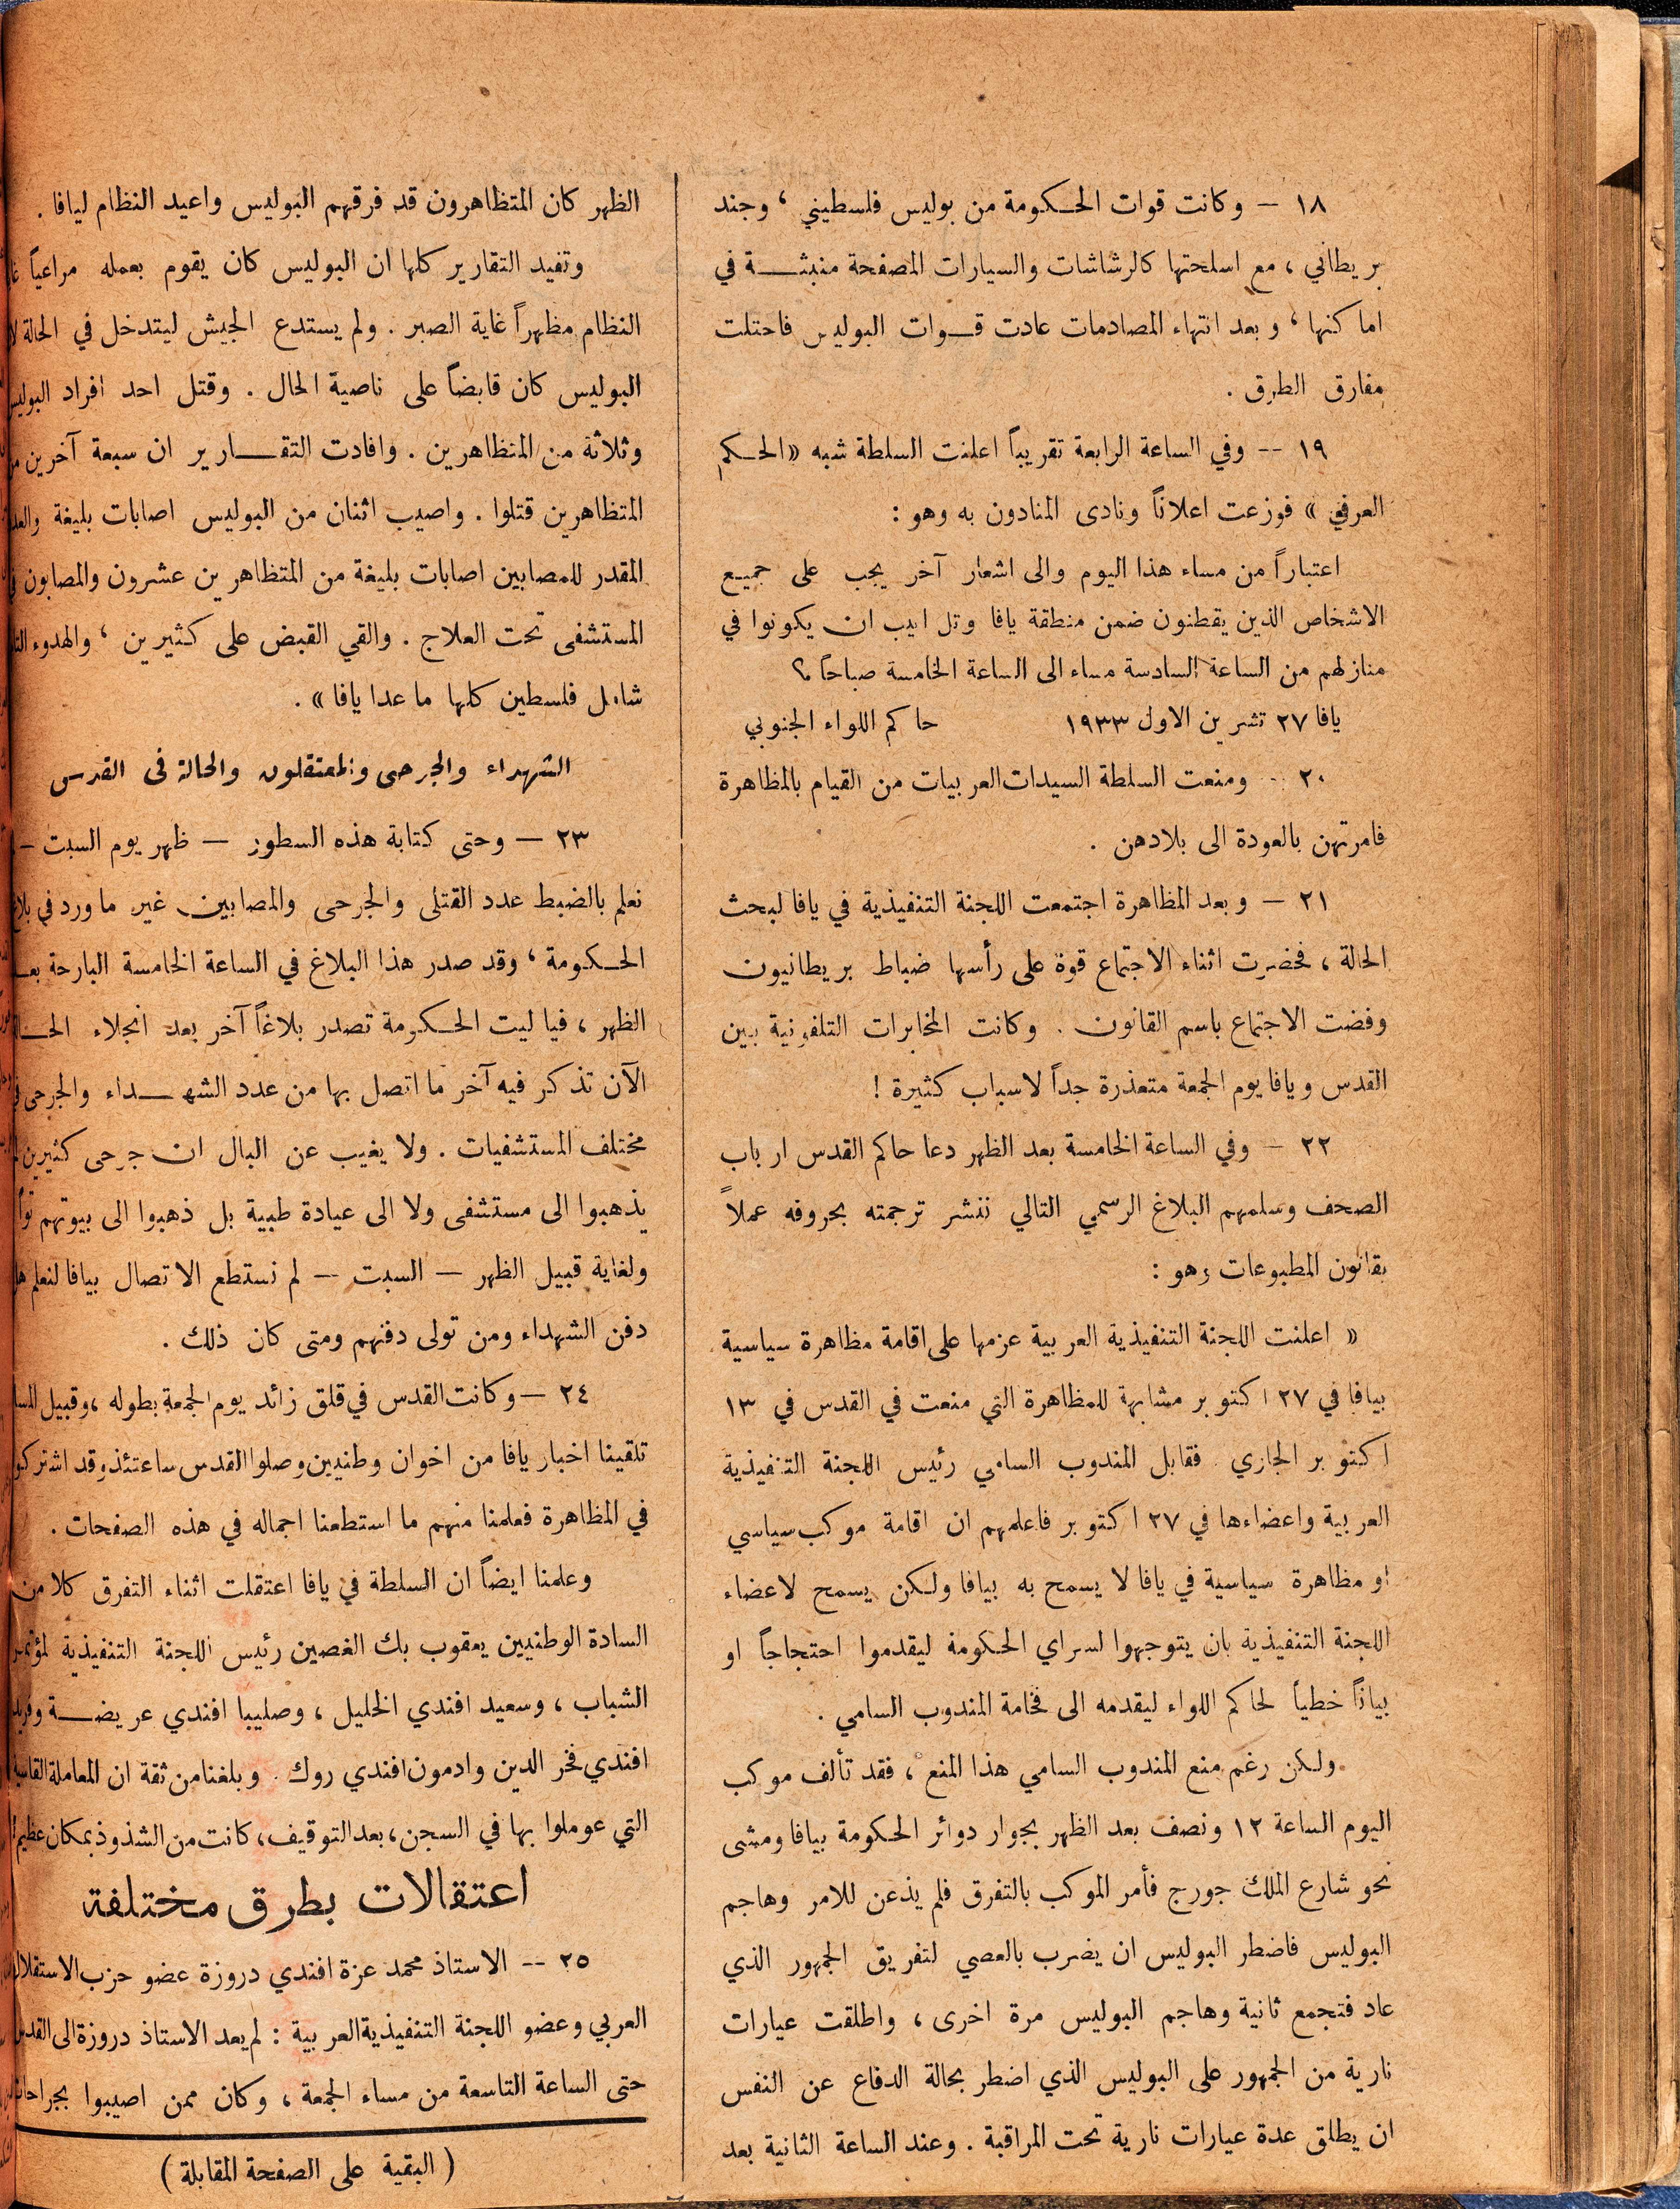 ١٨ — وكانت قوات الحكومة من بوليس فلسطيني ، وجند
بريطاني ، مع اسلحتها كالرشاشات والسيارات المصفحة منبثة في
اماكنها ، وبعد انتهاء المصادمات عادت قوات البوليس فاحتلت
مفارق الطرق .
١٩ -- وفي الساعة الرابعة تقريباً اعلنت السلطة شبه « الحكم
العرفي » فوزعت اعلاناً ونادى المنادون به وهو :
اعتباراً من مساء هذا اليوم والى اشعار آخر يجب على جميع
الاشخاص الذين يقطنون ضمن منطقة يافا وتل ابيب ان يكونوا في
منازلهم من الساعة السادسة مساء الى الساعة الخامسة صباحاً ؟
يافا ٢٧ تشرين الاول ١٩٣٣ حاكم اللواء الجنوبي
٢٠ -- ومنعت السلطة السيدات العربيات من القيام بالمظاهرة
فامرتهن بالعودة الى بلادهن .
٢١ — وبعد المظاهرة اجتمعت اللجنة التنفيذية في يافا لبحث
الحالة ، فحضرت اثناء الاجتماع قوة على رأسها ضباط بريطانيون
وفضت الاجتماع باسم القانون . وكانت المخابرات التلفونية بين
القدس ويافا يوم الجمعة متعذرة جداً لاسباب كثيرة !
٢٢ — وفي الساعة الخامسة بعد الظهر دعا حاكم القدس ارباب
الصحف وسلمهم البلاغ الرسمي التالي ننشر ترجمته بحروفه عملاً
بقانون المطبوعات وهو :
« اعلنت اللجنة التنفيذية العربية عزمها على اقامة مظاهرة سياسية
بيافا في ٢٧ اكتوبر مشابهة للمظاهرة التي منعت في القدس في ١٣
اكتوبر الجاري . فقابل المندوب السامي رئيس اللجنة التنفيذية
العربية واعضاءها في ٢٧ اكتوبر فاعلمهم ان اقامة موكب سياسي
او مظاهرة سياسية في يافا لا يسمح به بيافا ولكن يسمح لاعضاء
اللجنة التنفيذية بان يتوجهوا لسراي الحكومة ليقدموا احتجاجاً او
بياناً خطياً لحاكم اللواء ليقدمه الى فخامة المندوب السامي .
ولكن رغم منع المندوب السامي هذا المنع ، فقد تألف موكب
اليوم الساعة ١٢ ونصف بعد الظهر بجوار دوائر الحكومة بيافا ومشى
نحو شارع الملك جورج فأمر الموكب بالتفرق فلم يذعن للامر وهاجم
البوليس فاضطر البوليس ان يضرب بالعصي لتفريق الجمهور الذي
عاد فتجمع ثانية وهاجم البوليس مرة اخرى ، واطلقت عيارات
نارية من الجمهور على البوليس الذي اضطر بحالة الدفاع عن النفس
ان يطلق عدة عيارات نارية تحت المراقبة . وعند الساعة الثانية بعد
الظهر كان المتظاهرون قد فرقهم البوليس واعيد النظام ليافا .
وتفيد التقارير كلها ان البوليس كان يقوم بعمله مراعياً
النظام مظهراً غاية الصبر . ولم يستدع الجيش ليتدخل في الحالة
البوليس كان قابضاً على ناصية الحال . وقتل احد افراد البوليس
وثلاثة من المتظاهرين . وافادت التقارير ان سبعة آخرين من
المتظاهرين قتلوا . واصيب اثنان من البوليس اصابات بليغة والعدد
المقدر للمصابين اصابات بليغة من المتظاهرين عشرون والمصابون في
المستشفى تحت العلاج . والقي القبض على كثيرين ، والهدوء
شامل فلسطين كلها ما عدا يافا » .
الشهداء والجرحى والمعتقلون والحالة في القدس
٢٣ — وحتى كتابة هذه السطور — ظهر يوم السبت —
نعلم بالضبط عدد القتلى والجرحى والمصابين غير ما ورد في بلاغ
الحكومة ، وقد صدر هذا البلاغ في الساعة الخامسة البارحة بعد
الظهر ، فيا ليت الحكومة تصدر بلاغاً آخر بعد انجلاء
الآن تذكر فيه آخر ما اتصل بها من عدد الشهداء والجرحى في
مختلف المستشفيات . ولا يغيب عن البال ان جرحى كثيرين
يذهبوا الى مستشفى ولا الى عيادة طبية بل ذهبوا الى بيوتهم تواً
ولغاية قبيل الظهر — السبت — لم نستطع الاتصال بيافا لنعلم هل
دفن الشهداء ومن تولى دفنهم ومتى كان ذلك .
٢٤ — وكانت القدس في قلق زائد يوم الجمعة بطوله ، وقبيل المساء
تلقينا اخبار يافا من اخوان وطنيين وصلوا القدس ساعتئذ وقد اشتركوا
في المظاهرة فعلمنا منهم ما استطعنا اجماله في هذه الصفحات .
وعلمنا ايضاً ان السلطة في يافا اعتقلت اثناء التفرق كلا من
السادة الوطنيين يعقوب بك الغصين رئيس اللجنة التنفيذية لمؤتمر
الشباب ، وسعيد افندي الخليل ، وصليبا افندي عريضة وفريد
افندي فخر الدين وادمون افندي روك . وبلغنا من ثقة ان المعاملة القاسية
التي عوملوا بها في السجن ، بعد التوقيف ، كانت من الشذوذ بمكان عظيم !
اعتقالات بطرق مختلفة
٢٥ -- الاستاذ محمد عزة افندي دروزة عضو حزب الاستقلال
العربي وعضو اللجنة التنفيذية العربية : لم يعد الاستاذ دروزة الى القدس
حتى الساعة التاسعة من مساء الجمعة ، وكان ممن اصيبوا بجراحات
( البقية على الصفحة المقابلة )